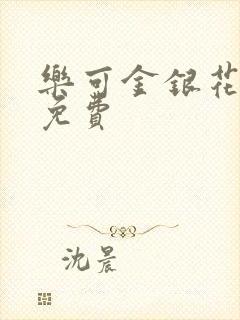 樂可金銀花
免費
沈晨